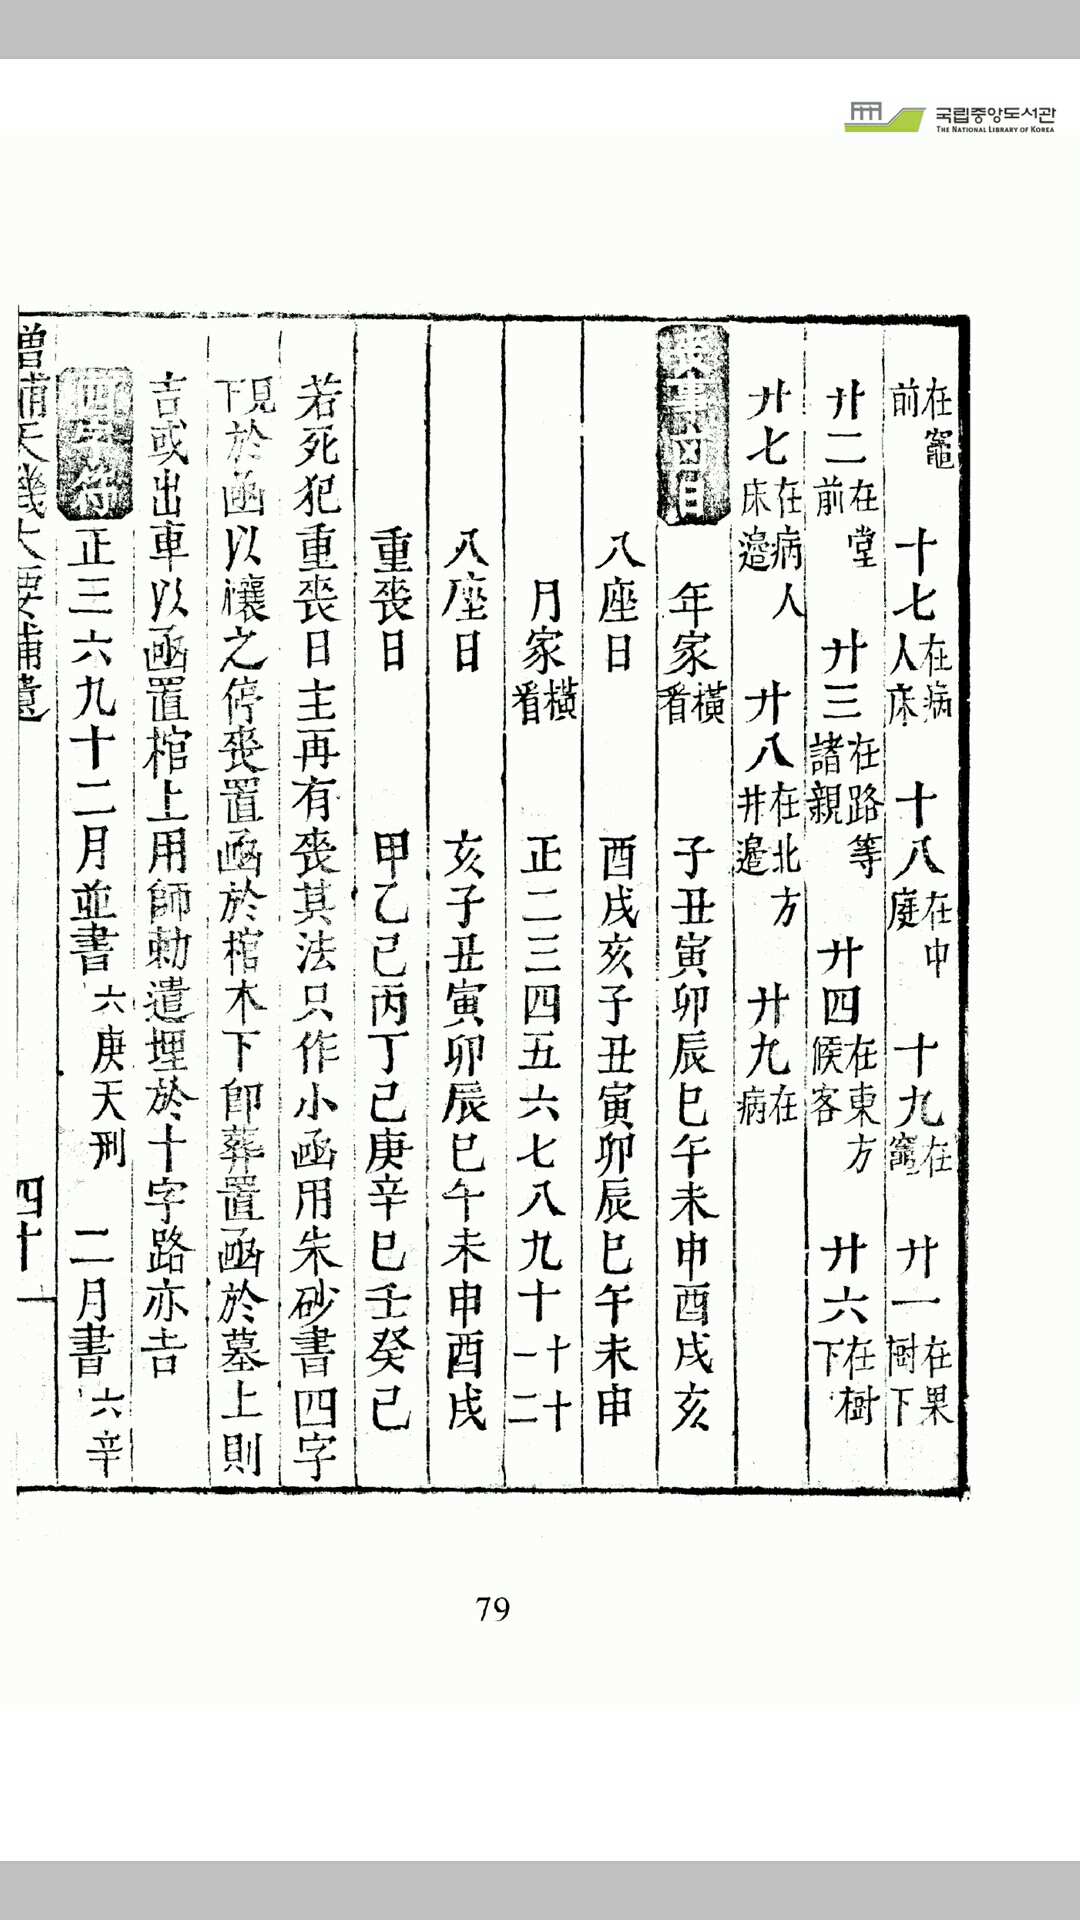 국립중앙도서관
THE NATIONAL LIBRARY OF KOREA
在竈前 十七在病人床 十八在中庭 十九在竈 廿一在果樹下
廿二在堂前 廿三在路等諸親 廿四在東方候客 廿六在樹下
廿七在病人床邊 廿八在北方井邊 廿九在病
喪事凶日 年家橫看 子丑寅卯辰巳午未申酉戌亥
八座日 酉戌亥子丑寅卯辰巳午未申
月家橫看 正二三四五六七八九十十一十二
八座日 亥子丑寅卯辰巳午未申酉戌
重喪日 甲乙己丙丁己庚辛巳壬癸己
若死犯重喪日主再有喪其法只作小函用朱砂書四字
見下於函以禳之停喪置函於棺木下卽葬置函於墓上則
吉或出車以函置棺上用師勅遣埋於十字路亦吉
四字符 正三六九十二月並書六庚天刑 二月書六辛
增補天機大要補遺 四十一
79